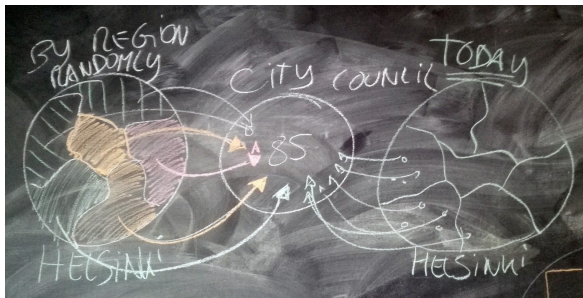 BY REGION
RANDOMLY
CITY COUNCIL
TODAY
85
HELSINKI
HELSINKI